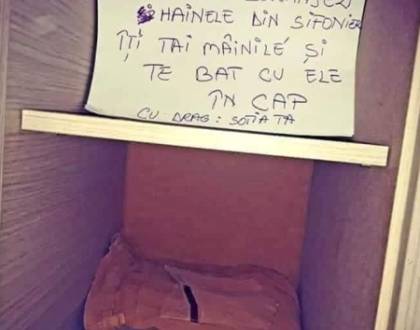 HAINELE DIN SIFONIER
ÎȚI TAI MÂINILE ȘI
TE BAT CU ELE
ÎN CAP
CU DRAG: SOTIA TA